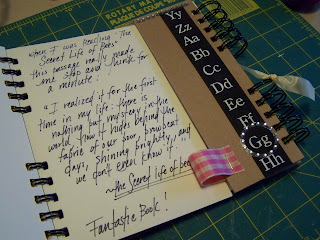 ROTARY MAT
when I was reading "The
Secret Life of Bees"
this passage really made
me stop and think for
a minute:
"I realized it for the first
time in my life: there is
nothing but mystery in the
world, how it hides behind the
fabric of our poor, browbeat
days, shining brightly, and
we don't even know it."
~the Secret life of bees
Fantastic Book!
Yy
Zz
Aa
Bb
Cc
Dd
Ee
Ff
Gg
Hh